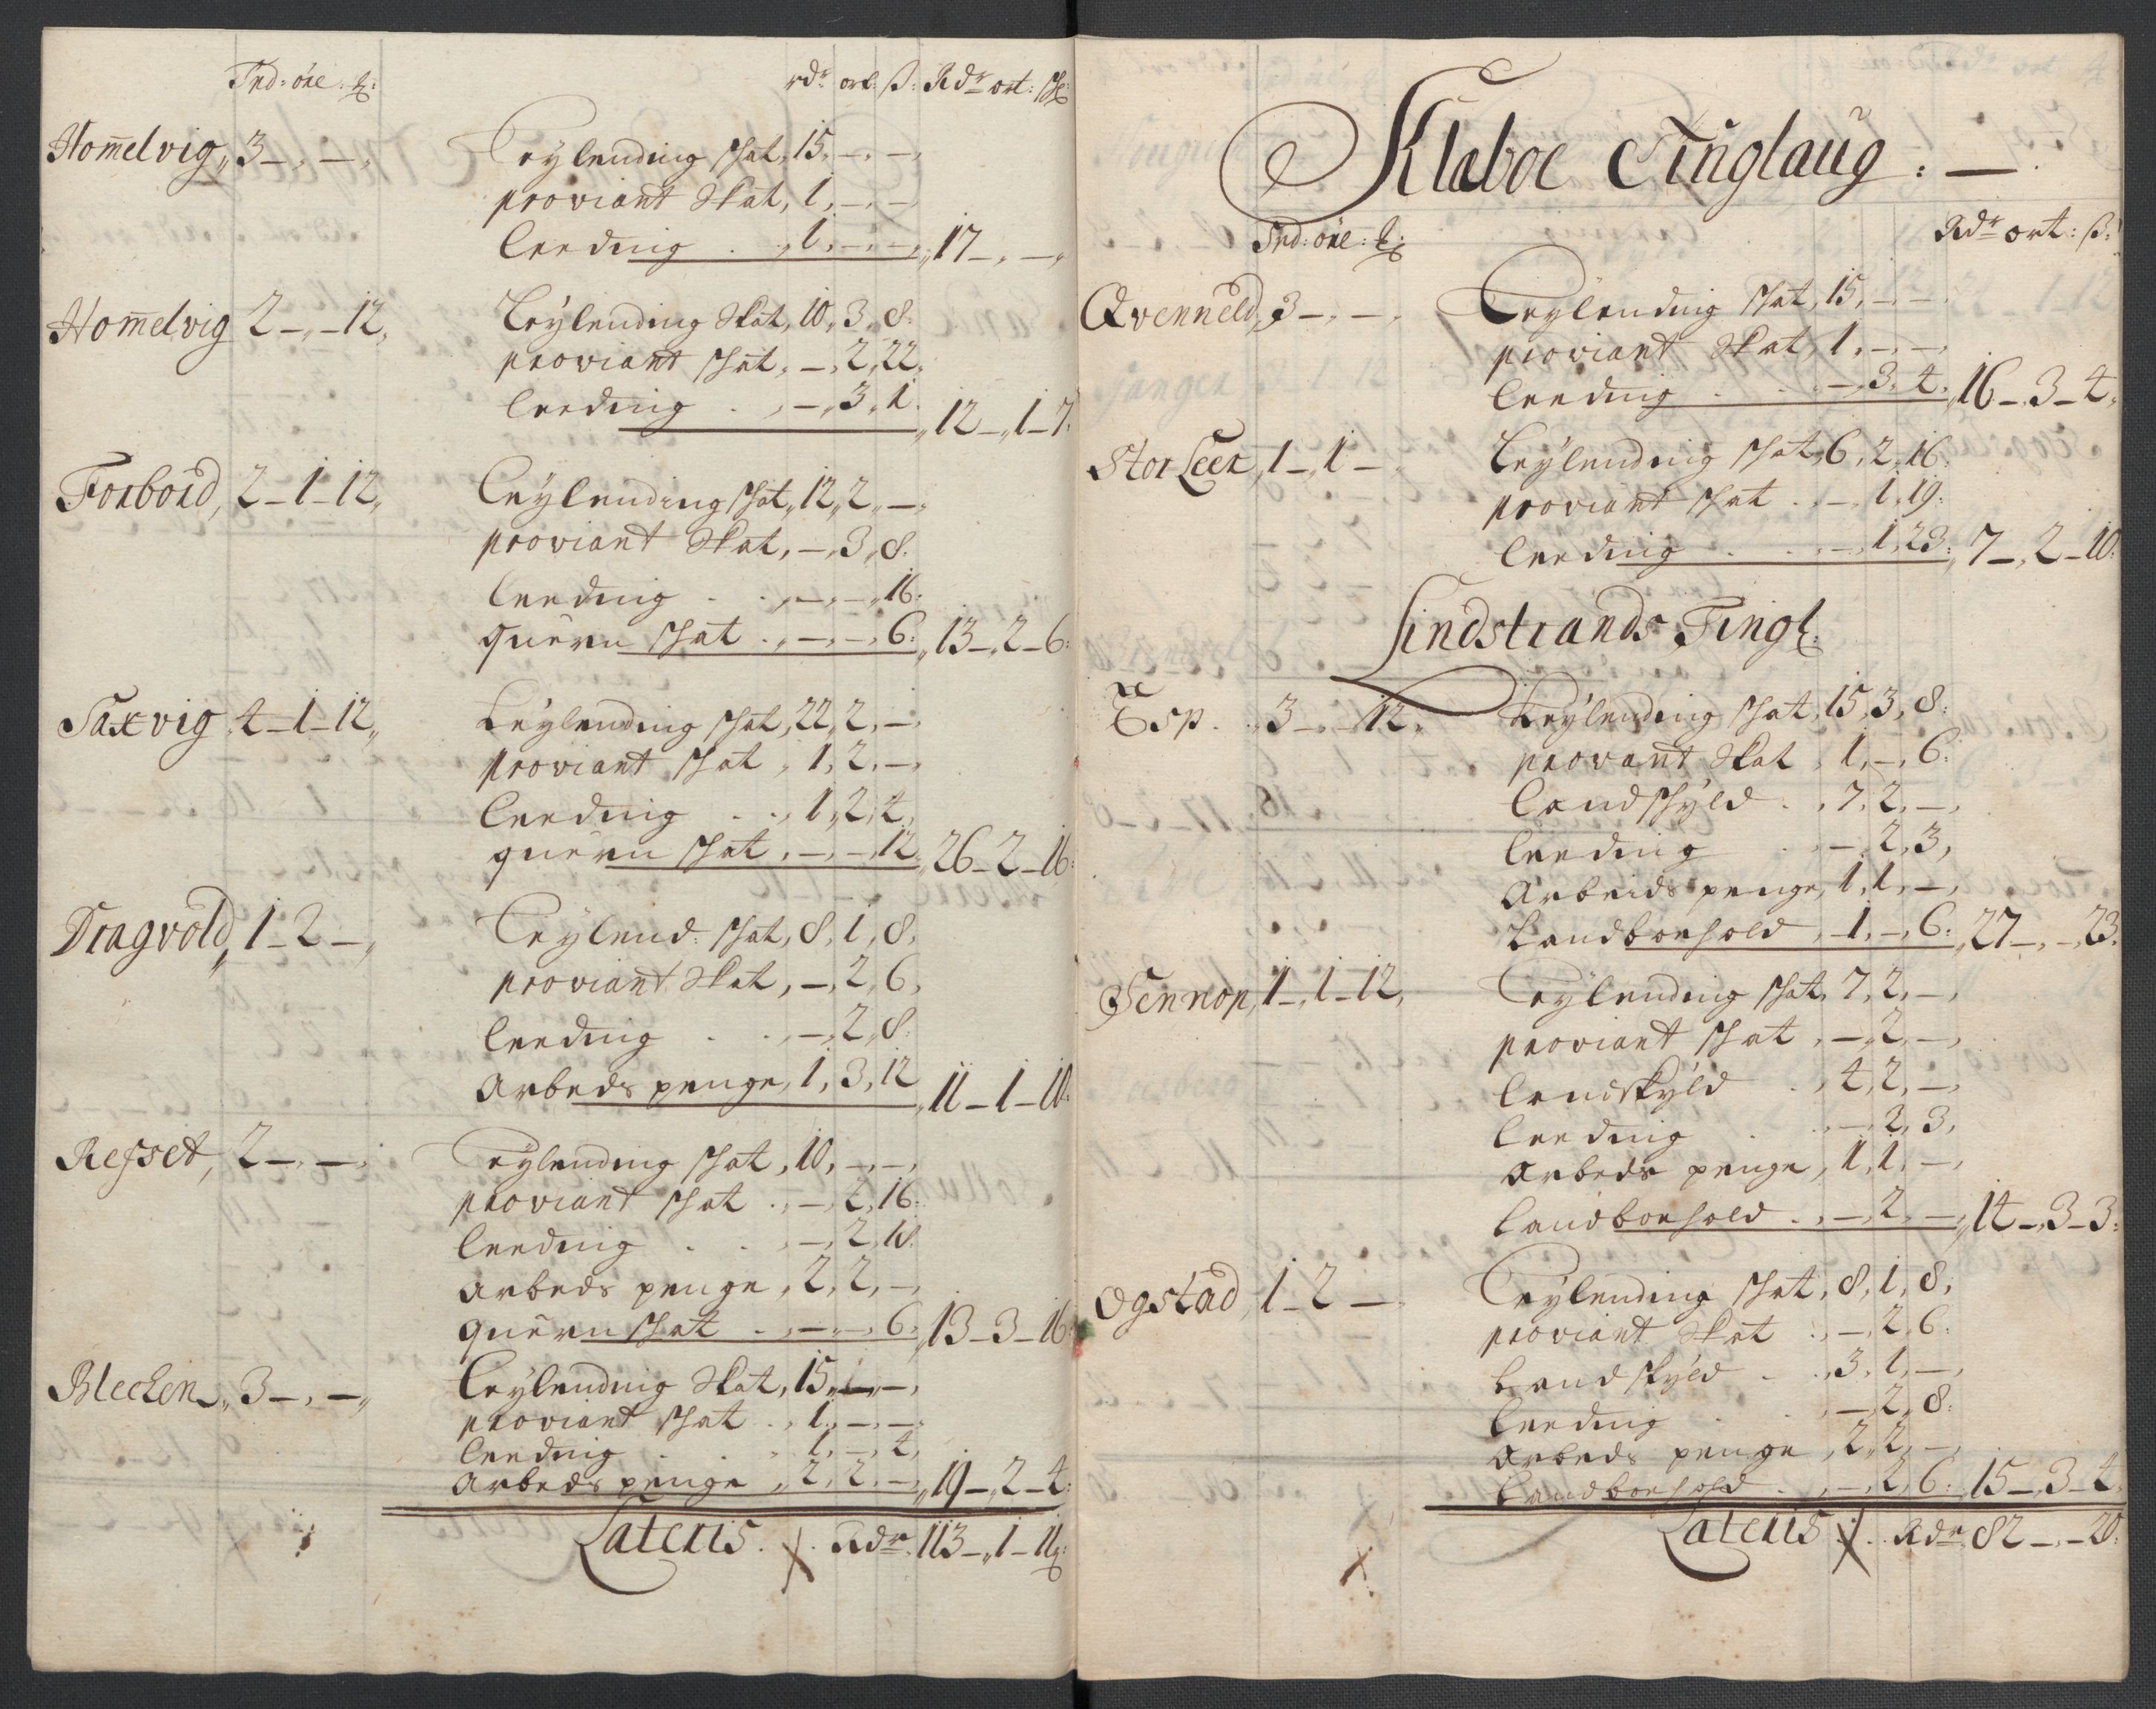 Spd: öre: ꝶ: rdr ort: ß: Rdr ort: ß:
Hom̄elvig, 3 - , - , Leylending skat, 15, - , - ,
proviant Skat, 1, - , -
Leeding . , 1, - , - , 17 - , - ,
Hom̄elvig 2 - , - 12, Leylending Skat, 10, 3, 8:
proviant skat, - , 2, 22,
Leeding . , - , 3, 1. 12 - , 1 - 7:
Forbord, 2 - 1 - 12, Leylending skat, 12, 2, - ,
proviant Skat, - , 3, 8:
Leeding . . , - , - , 16:
quern skat . , - , - , 6: 13 - , 2 - 6:
Saxvig, 4 - 1 - 12, Leylending skat, 22, 2, - ,
proviant skat, 1, 2, - ,
Leeding . . , 1, 2, 4,
quern skat, - , - , 12, 26 - 2 - 16:
Dragvold, 1 - 2 - , Leylend: skat, 8, 1, 8,
proviant Skat, - , 2, 6,
Leeding . . , - , 2, 8:
Arbeds penge, 1, 3, 12 11 - 1 - 10:
Refset, 2 - , - , Leylending skat, 10, - , - ,
proviant skat . , - , 2, 16:
Leeding . . , - , 2, 18:
Arbeds penge, 2, 2, - ,
quern skat . , - , - , 6: 13 - 3 - 16:
Blecken, 3 - , - , Leylending Skat, 15, - , - ,
proviant skat . , 1, - , - ,
Leeding . . , 1, - , 4,
Arbeds penge, 2, 2, - , 19 - , 2 - 4:
Lateris . Rdr 113 - , 1 - 11:
Klæboe Tinglaug : -
Spd: öre: ꝶ: Rdr ort: ß:
Qvenneld, 3 - , - , Leylending skat, 15, - , -
proviant Skat, 1, - , - ,
Leeding . . , - , 3, 4: 16 - , 3 - 4,
Stor Leer, 1 - , 1 - , Leylending skat, 6, 2, 16:
proviant skat . , - , 1, 19:
Leeding . . , - , 1, 23: 7 - , 2 - 10:
Sindstrands Tingl:
Esp . . 3 - , - 12, Leylending skat, 15, 3, 8:
provant Skat, 1, - , 6:
Landskyld . , 7, 2, - ,
Leeding . , - , 2, 3,
Arbeids penge, 1, 1, - ,
Landboehold, 1, - , 6: 27 - , - , 23.
Sennop, 1 - , 1 - 12, Leylending skat, 7, 2, - ,
proviant skat, - , 2, - ,
Landskyld . , 4, 2, - ,
Leeding . . , - , 2, 3,
Arbeds penge, 1, 1, - ,
Landboehold . , - , 2, - , 14 - , 3 - 3:
Ogstad, 1 - 2 - , Leylending skat, 8, 1, 8,
proviant Skat . , - , 2, 6:
Landskyld . , 3, 1, - ,
Leeding . , - , 2, 8:
Arbeds penge, 2, 2, - ,
Landboehold . , - , 2, 6: 15 - , 3 - 4,
Lateris . Rdr 82 - , - 20: